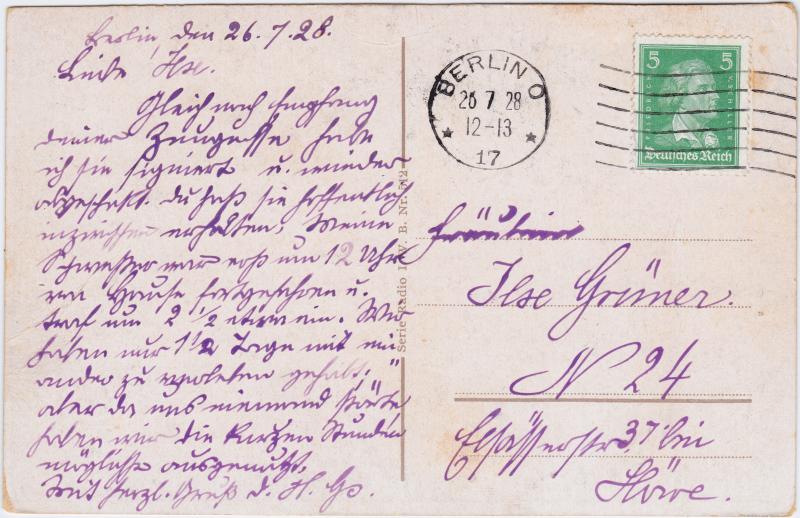 Berlin, den 26.7.28.
Liebe Ilse.
Gleich nach Empfang
deiner Zeugnisse habe
ich sie signiert u. wieder
abgeschickt. Du hast sie hoffentlich
inzwischen erhalten. Meine
Schwester war erst um 12 Uhr
von Hause fortgefahren u.
traf um 2 1/2 etwa ein. Wir
haben nur 1 1/2 Tage mit ein
ander zu verleben gehabt,
aber da uns niemand störte
haben wir die kurzen Stunden
möglichst ausgenutzt.
Mit herzl. Gruß d. H.
Serie Radio I. W. B. Nr. 512
BERLIN O
26 7 28
12-13
17
5 5
Deutsches Reich
Fräulein
Ilse Grüner.
N 24
Elsässerstr. 37 bei
Höwe.